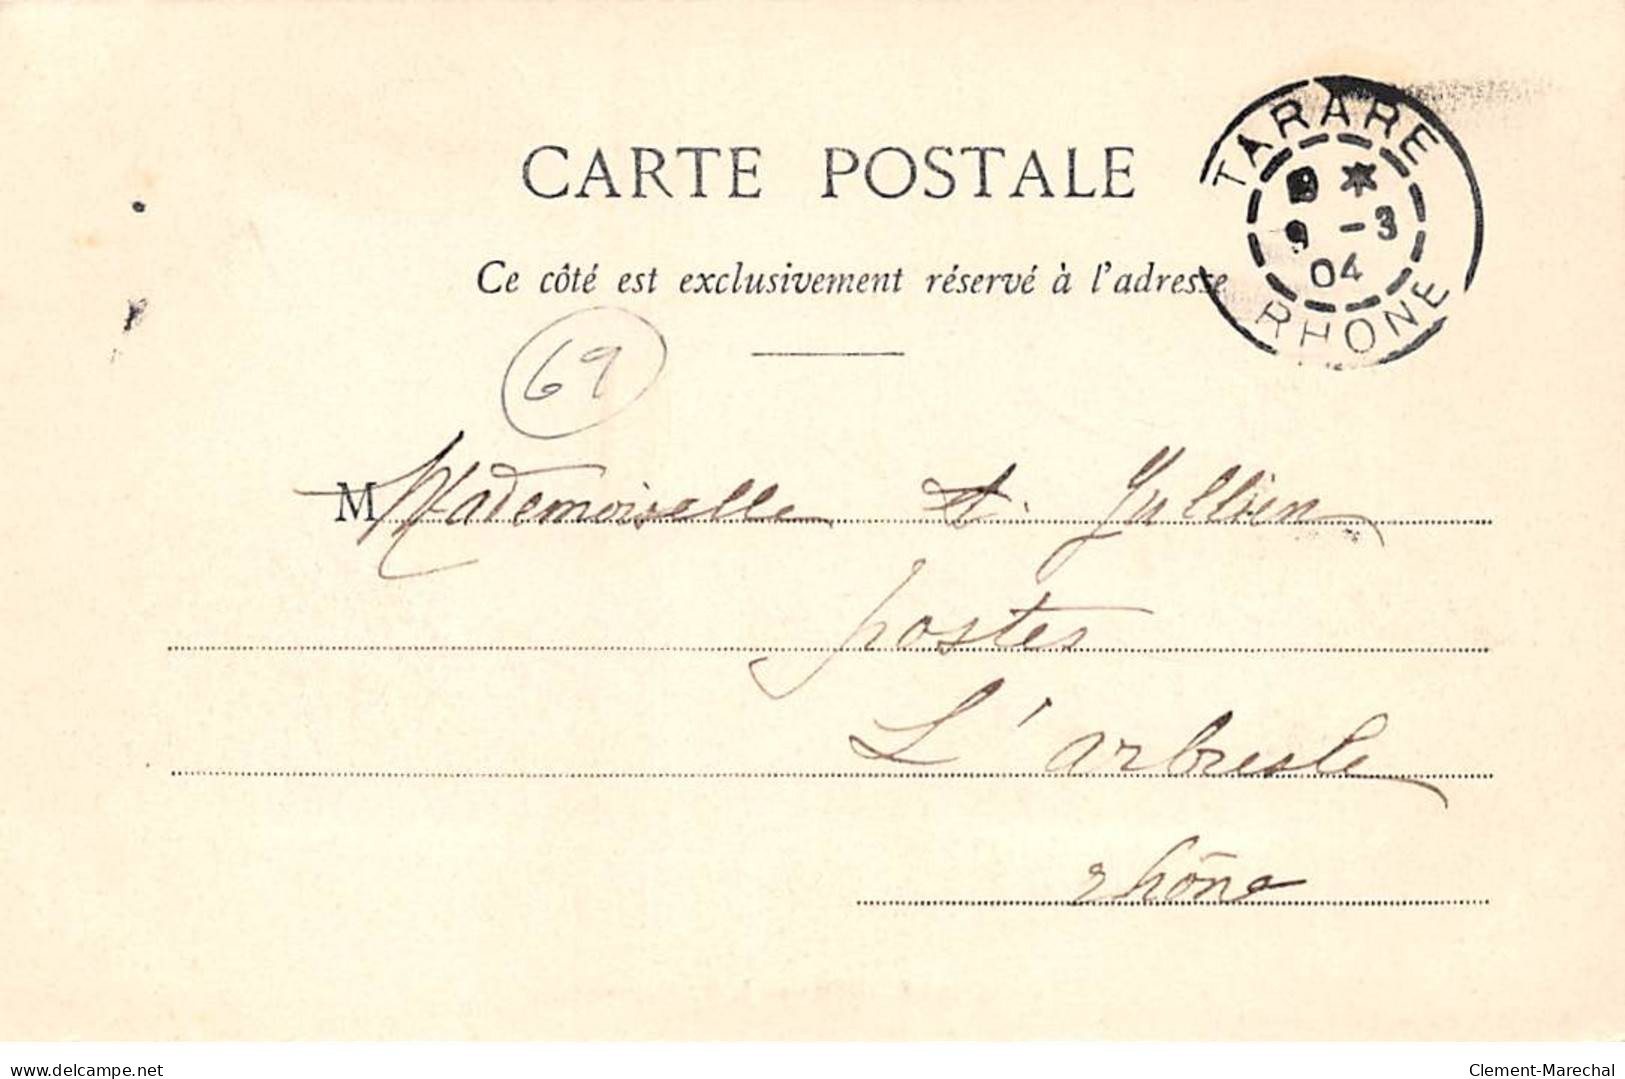 CARTE POSTALE
Ce côté est exclusivement réservé à l'adresse
TARARE
9 -3
04
RHONE
69
M Mademoiselle A. Jullien
postes
L'arbresle
rhône
delcampe.net
Clement-Marechal